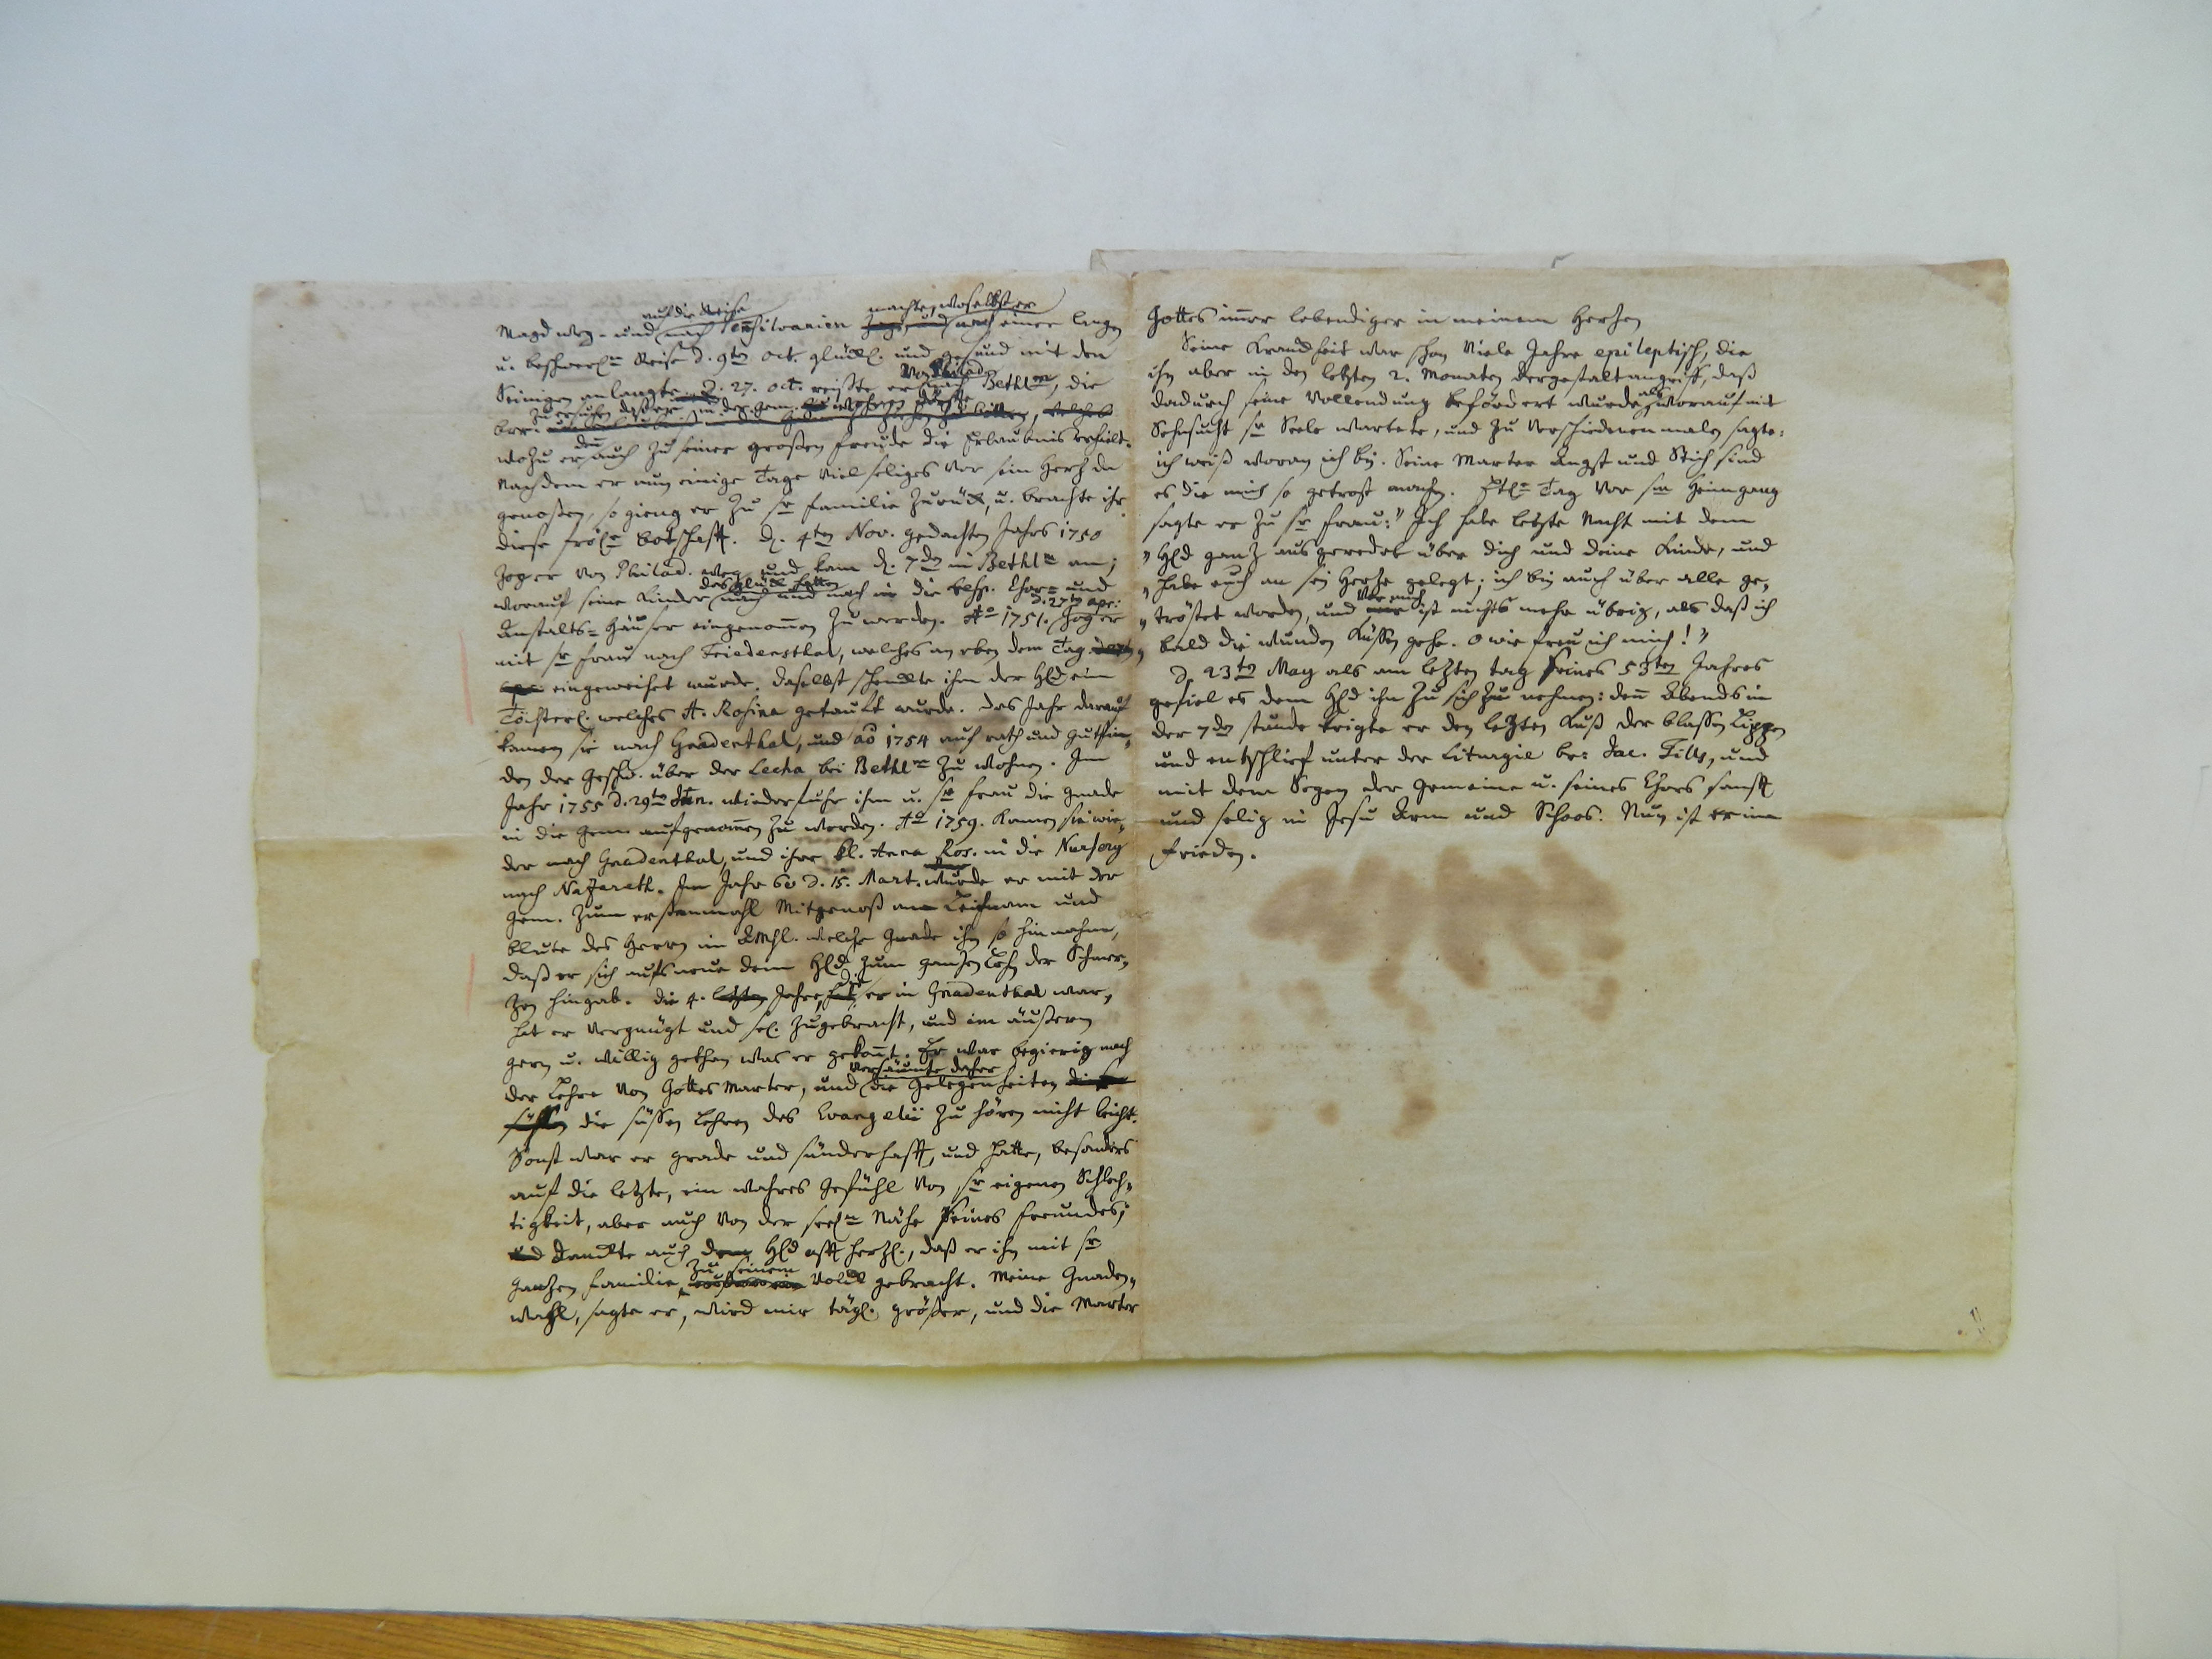 auf die Reise machte, woselbst er
Magd weg- und nach Pensilvanien nach einer langen
u. beschwerl.n Reise d. 9ten Oct. glückl. und gesund mit den
von Philad.
Seinigen anlangte. D. 27. Oct. reißte er nach Bethl.m, die
zu ersuchen, daß er in der Gem. wohnen dürfte
Brr.
wozu er denn auch zu seiner großen Freude die Erlaubnis erhielt.
Nachdem er nun einige Tage viel seliges vor sein Herz da
genoßen, so gieng er zu sr Familie zurück, u. brachte ihr
diese fröl.e Botschafft. D. 4ten Nov. gedachten Jahrs 1750
zog er von Philad. weg und kam d. 7den in Bethl.m an;
das Glück hatten
worauf seine Kinder nach und nach in die Chor- und
d. 27ten Apr:
Anstalts-Häuser eingenommen zu werden. Ao 1751. zog er
mit sr Frau nach Friedensthal, welches an eben dem Tag
eingeweihet wurde. Daselbst schenckte ihm der Hld ein
Töchterl. welches A. Rosina getauft wurde. Das Jahr darauf
kamen sie nach Gnadenthal, und ao 1754 auf rath und Gutfin-
den der Geschw. über der Lecha bei Bethl.m zu wohnen. Im
Jahr 1755 d. 29ten Jan. wiederfuhr ihm u. sr Frau die Gnade
in die Gem. aufgenommen zu werden. Ao 1759. kamen sie wie-
der nach Gnadenthal, und ihre kl. Anna Ros. in die Nursery
nach Nazareth. Im Jahr 60 d. 15. Mart. wurde er mit der
Gem. zum erstenmahl Mitgenoß am Leichnam und
Blute des Herrn im Abml. welche Gnade ihn so hinnahm,
daß er sich aufs neue dem Hld zum ganzen Lohn der Schmer-
zen hingab. Die 4. Jahre, die er in Gnadenthal war,
hat er vergnügt und sel. zugebracht, und im äußern
gern u. willig gethan was er gekonnt. Er war begierig nach
versäumte daher
der Lehre von Gottes Marter, und die Gelegenheiten
die süßen Lehren des Evangelii zu hören nicht leicht.
Sonst war er grade und sünderhafft, und hatte, besonders
auf die letzte, ein wahres Gefühl von sr eigenen Schlech-
tigkeit, aber auch von der seel.n Nähe seines Freundes;
danckte auch dem Hld offt herzl., daß er ihn mit sr
zu seinem
ganzen Familie Volck gebracht. Meine Gnaden-
wahl, sagte er, wird mir tägl. größer, und die Marter
Gottes immer lebendiger in meinem Herzen
Seine Kranckheit war schon viele Jahre epileptisch, die
ihn aber in den letzten 2. Monaten dergestalt angriff, daß
dadurch seine Vollendung befördert wurde, als worauf mit
Sehnsucht sr Seele wartete, und zu verschiedenen malen sagte:
ich weiß woran ich bin. Seine Marter Angst und Stich sind
es die mich so getrost machen. Etl.e Tag vor sm Heimgang
sagte er zu sr Frau: "Ich habe letzte Nacht mit dem
" Hld ganz ausgeredet über dich und deine Kinder, und
" habe euch an sein Herze gelegt; ich bin auch über alle ge-
vor mich
" tröstet worden, und ist nichts mehr übrig, als daß ich
" bald die Wunden küssen gehe. O wie freu ich mich! "
D. 23ten May als am letzten tag seines 53ten Jahres
gefiel es dem Hld ihn zu sich zu nehmen: denn Abends in
der 7den Stunde krigte er den letzten Kuß der blassen Lippen
und entschlief unter der Liturgie br: Jac. Tills, und
mit dem Segen der Gemeine u. seines Chors sanfft
und selig in Jesu Arm und Schoos. Nun ist er im
Frieden.